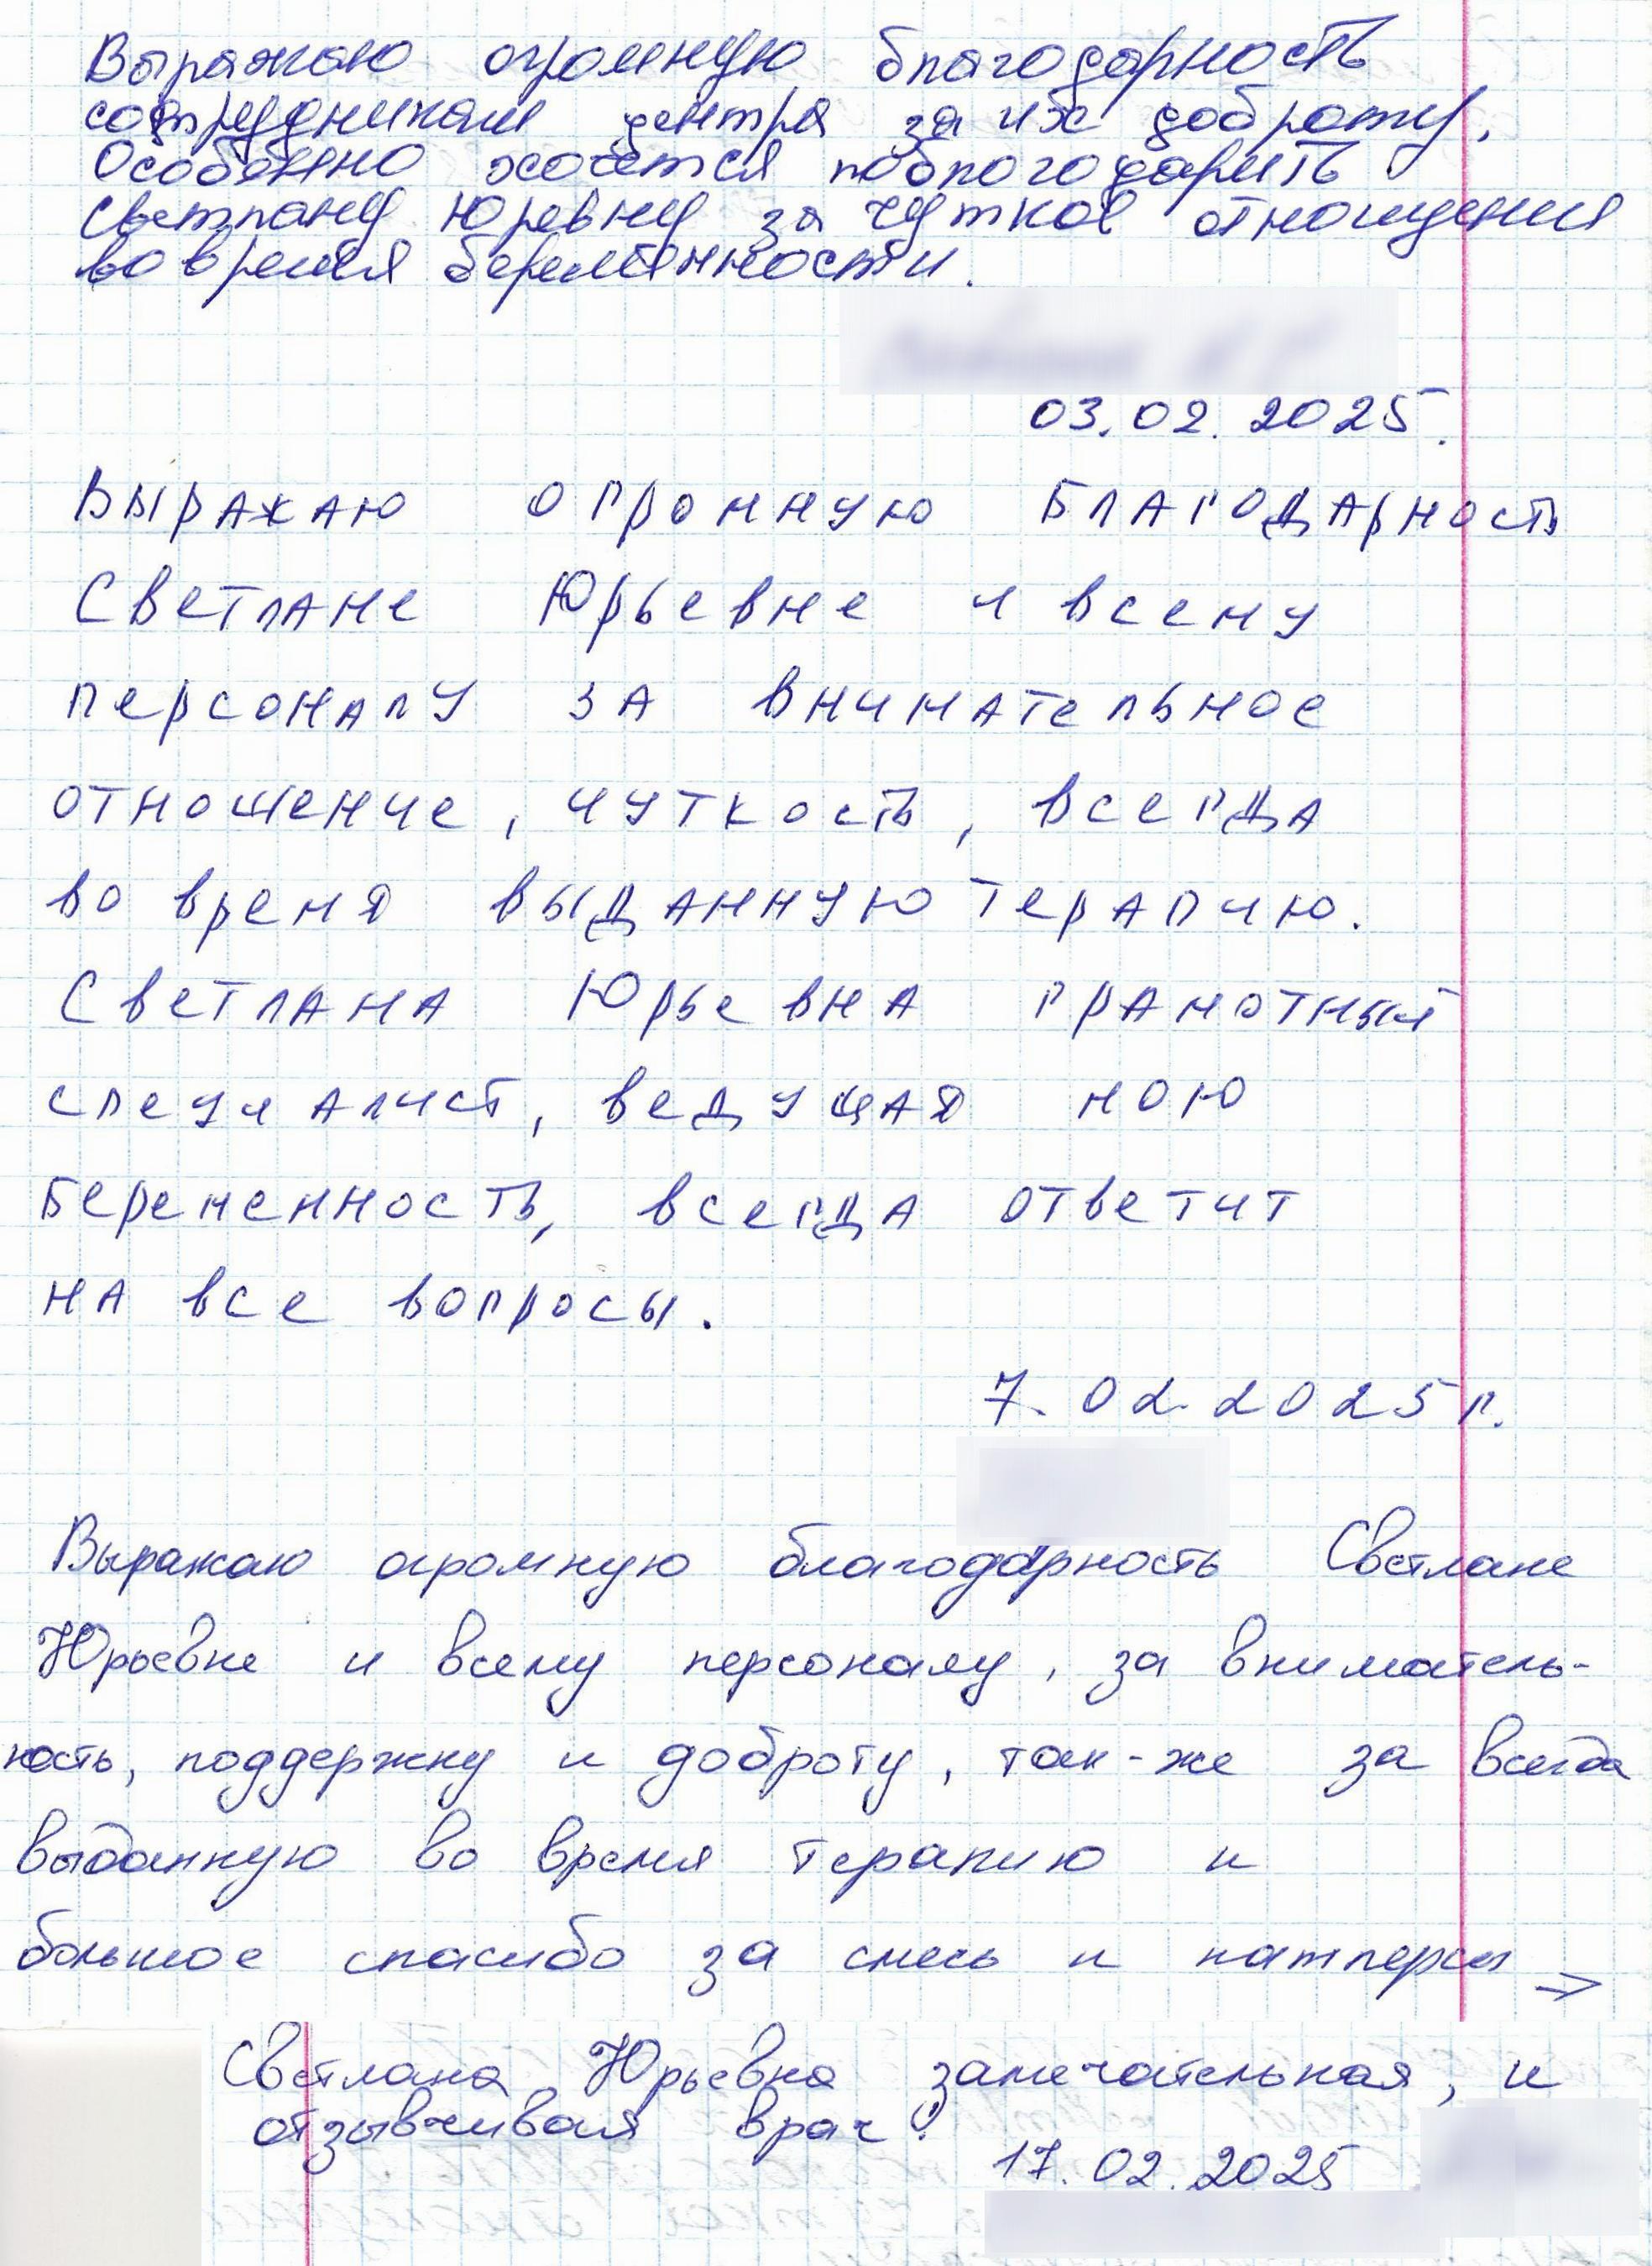 Выражаю огромную благодарность
сотрудникам центра за их доброту.
Особенно хочется поблогодарить
Светлану Юревну за чуткое отношения
во время беремтнности.
03.02.2025.
Выражаю огромную благодарность
Светлане Юрьевне и всему
персоналу за внимательное
отношение, чуткость, всегда
во время выданную терапию.
Светлана Юрьевна грамотный
специалист, ведущая мою
беременность, всегда ответит
на все вопросы.
7.02.2025г.
Выражаю огромную благодарность Светлане
Юрьевне и всему персоналу, за вниматель-
ность, поддержку и доброту, так-же за всегда
выданную во время терапию и
большое спасибо за смесь и памперсы →
Светлана Юрьевна замечательная, и
отзывчивая врач!
17.02.2025